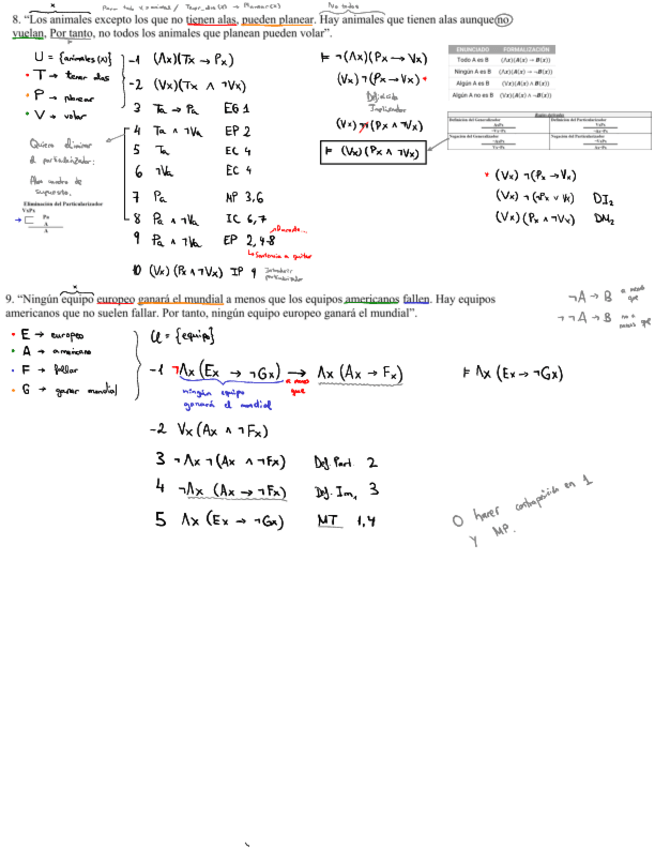 x
Para todo x animal / Tener_alas(x) → Planear(x)
No todos
8. “Los animales excepto los que no tienen alas, pueden planear. Hay animales que tienen alas aunque no
vuelan. Por tanto, no todos los animales que planean pueden volar”.
U = {animales (x)}
• T → tener alas
• P → planear
• V → volar
Quiero eliminar
el particularizador:
Abro cuadro de
supuesto.
Eliminación del Particularizador
VxPx
Pa
A
A
-1 (Λx)(Tx → Px)
-2 (Vx)(Tx ∧ ¬Vx)
3 Ta → Pa EG 1
4 Ta ∧ ¬Va EP 2
5 Ta EC 4
6 ¬Va EC 4
7 Pa MP 3,6
8 Pa ∧ ¬Va IC 6,7
9 Pa ∧ ¬Va EP 2, 4-8
Sentencia a quitar
10 (Vx)(Px ∧ ¬Vx) IP 9 Introducir
particularizador
⊨ ¬(Λx)(Px → Vx)
(Vx) ¬(Px → Vx) *
Definición
Implicador
(Vx) ¬(Px ∧ ¬Vx)
⊨ (Vx)(Px ∧ ¬Vx)
ENUNCIADO FORMALIZACIÓN
Todo A es B (Λx)(A(x) → B(x))
Ningún A es B (Λx)(A(x) → ¬B(x))
Algún A es B (Vx)(A(x) ∧ B(x))
Algún A no es B (Vx)(A(x) ∧ ¬B(x))
Reglas derivadas
Definición del Generalizador Definición del Particularizador
Negación del Generalizador Negación del Particularizador
* (Vx) ¬(Px → Vx)
(Vx) ¬(¬Px ∨ Vx) DI2
(Vx)(Px ∧ ¬Vx) DN2
x
9. “Ningún equipo europeo ganará el mundial a menos que los equipos americanos fallen. Hay equipos
americanos que no suelen fallar. Por tanto, ningún equipo europeo ganará el mundial”.
¬A → B a menos que
¬¬A → B no a menos que
• E → europeo
• A → americano
• F → fallar
• G → ganar mundial
U = {equipo}
-1 ¬Λx (Ex → ¬Gx) → Λx (Ax → Fx)
a menos
que
ningún equipo
ganará el mundial
⊨ Λx (Ex → ¬Gx)
-2 Vx (Ax ∧ ¬Fx)
3 ¬Λx ¬(Ax ∧ ¬Fx) Def. Part 2
4 ¬Λx (Ax → ¬Fx) Def. Im, 3
5 Λx (Ex → ¬Gx) MT 1,4
O hacer contraposición en 1
y MP.